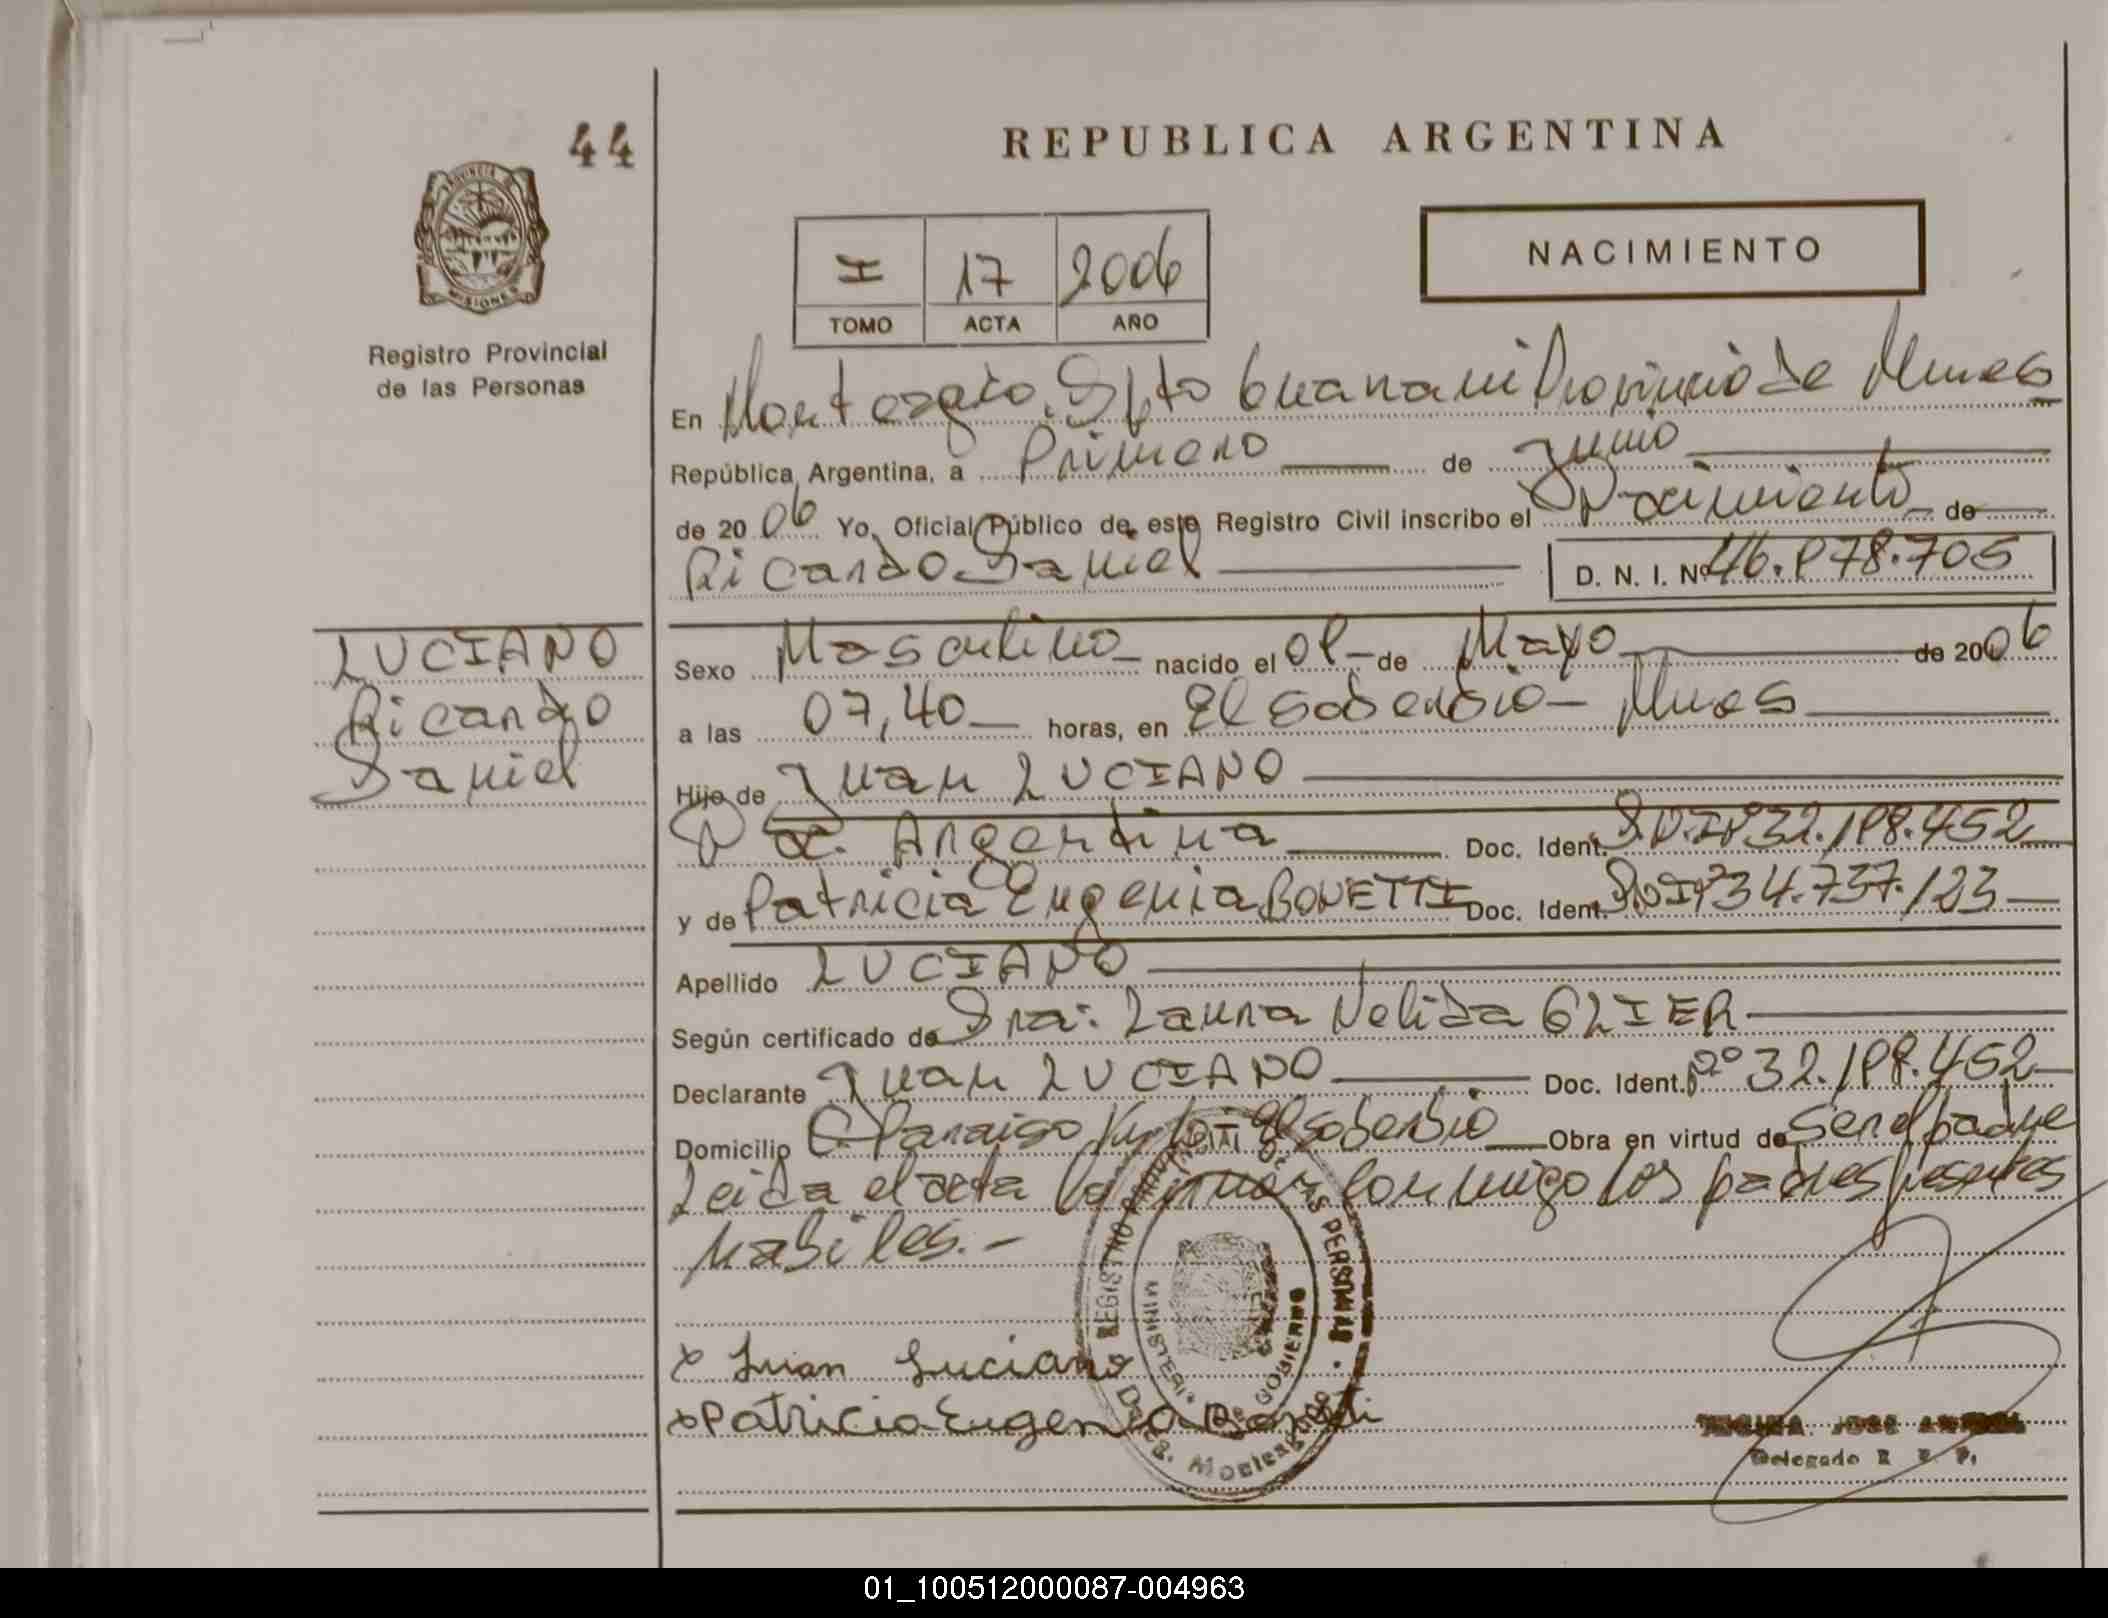 44
REPUBLICA ARGENTINA
PROVINCIA DE
MISIONES
Registro Provincial
de las Personas
I 17 2006
TOMO ACTA AÑO
NACIMIENTO
En Monteagdo, Dpto Guarani Provincia de Mnes
República Argentina, a Primero de Junio
de 2006 Yo, Oficial Público de este Registro Civil inscribo el Nacimiento de
Ricardo Daniel D. N. I. Nº
LUCIANO
Ricardo
Daniel
Sexo Masculino nacido el de Mayo de 2006
a las 07,40 horas, en El Soberbio - Mnes
Hijo de Juan LUCIANO
Argentina Doc. Ident. D.N.I.Nº 32.198.452
y de Patricia Eugenia BONETTI Doc. Ident. D.N.I.Nº 34.737.123
Apellido LUCIANO
Según certificado de Sra: Laura Nelida GLIER
Declarante Juan LUCIANO Doc. Ident. Nº 32.198.452
Domicilio Paraiso El Soberbio Obra en virtud de Ser el padre
Leida el acta la firman conmigo los padres presentes
habiles.-
REGISTRO PROVINCIAL DE LAS PERSONAS
MINISTERIO DE GOBIERNO
Deleg. Monteagudo
x Juan Luciano
x Patricia Eugenia Bonetti
JOSE
Delegado R. P. P.
01_100512000087-004963